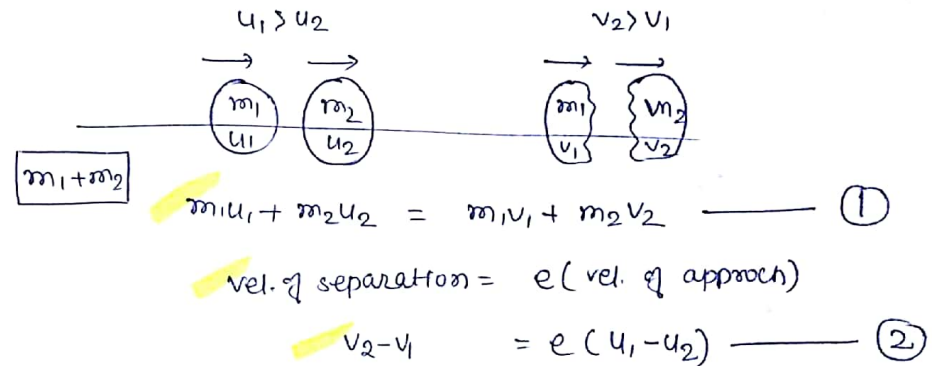 u₁ > u₂ v₂ > v₁
m₁ m₂ m₁ m₂
u₁ u₂ v₁ v₂
m₁ + m₂
m₁u₁ + m₂u₂ = m₁v₁ + m₂v₂ ——— ①
vel. of separation = e ( vel. of approch)
v₂ - v₁ = e ( u₁ - u₂) ——— ②